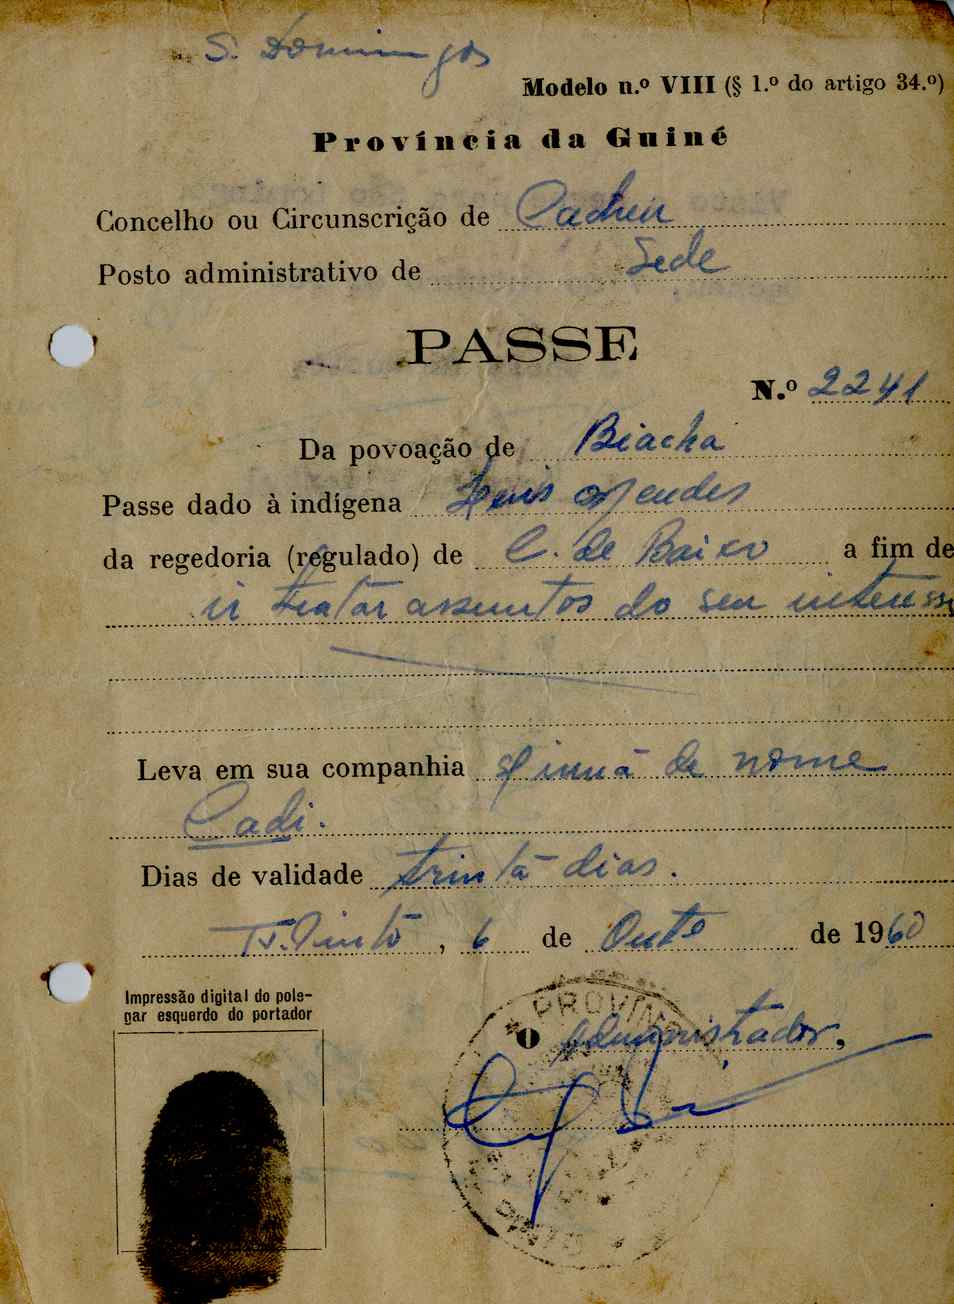 S. Domingos
Modelo n.º VIII (§ 1.º do artigo 34.º)
Província da Guiné
Concelho ou Circunscrição de Cacheu
Posto administrativo de Sede
PASSE
N.º 2241
Da povoação de Biacha
Passe dado à indígena Mendes
da regedoria (regulado) de C. de Baixo a fim de
ir tratar assuntos do seu interesse
Leva em sua companhia irmã de nome
Cadi.
Dias de validade trinta dias.
T. Pinto, 6 de Outº de 1960
Impressão digital do pole-
gar esquerdo do portador
PROVIN
O Administrador,